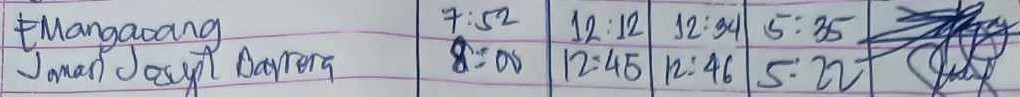 EMangaoang 7:52 12:12 12:34 5:35
Joman Josyl Barrera 8:00 12:45 12:46 5:22